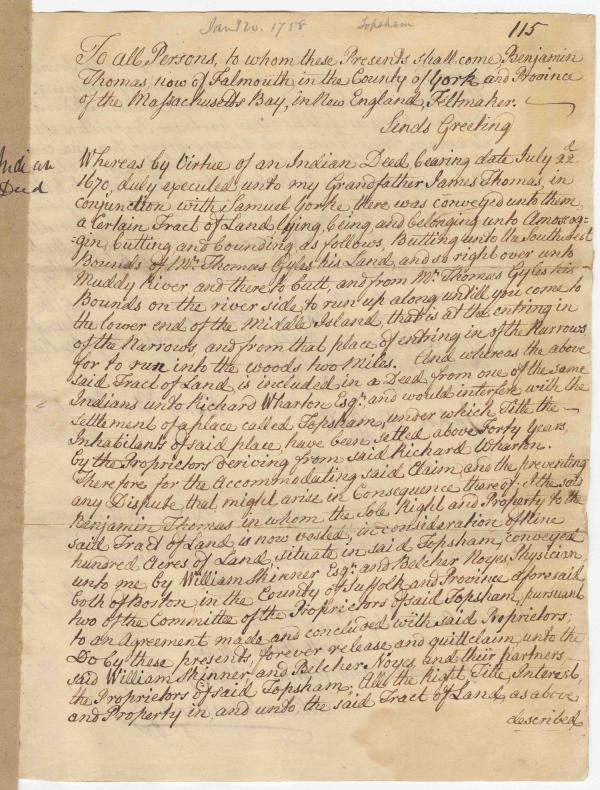 Jany 20. 1758 Topsham 115
To all Persons, to whom these Presents shall come, Benjamin
Thomas, now of Falmouth, in the County of York and Province
of the Massachusetts Bay, in New England, Feltmaker.
Sends Greeting
Indian
Deed
Whereas by Virtue of an Indian Deed bearing date July 22d
1670, duly executed unto my Grandfather James Thomas, in
conjunction with Samuel Yorke there was conveyed unto them
a Certain Tract of Land lying, being, and belonging unto Amoscog-
gin, Cutting and bounding as follows, Butting unto the Southwest
Bounds of Mr. Thomas Gyles his Land, and so right over unto
Muddy River and there to butt, and from Mr. Thomas Gyles his
Bounds on the river side, to run up along untill you come to
the lower end of the Middle Island, that is at the entring in
of the Narrows, and from that place of entring in of the Narrows
for to run into the woods two Miles. And whereas the above
said Tract of Land is included in a Deed from one of the same
Indians unto Richard Wharton Esqr. and would interfere with the
Settlement of a place called Topsham, under which Title the
Inhabitants of said place, have been setled above Forty Years,
by the Proprietors deriving from said Richard Wharton.
Therefore for the Accommodating said Claim, and the preventing
any Dispute that might arise in Consequence thereof; I the said
Benjamin Thomas in whom the Sole Right and Property to the
said Tract of Land is now vested, in consideration of Nine
hundred Acres of Land, situate in said Topsham, conveyed
unto me by William Skinner Esqr. and Belcher Noyes, Physician
both of Boston, in the County of Suffolk and Province aforesaid,
two of the Committee of the Proprietors of said Topsham, pursuant
to an Agreement made and concluded with said Proprietors;
Do by these presents, forever release and quitclaim unto the
said William Skinner, and Belcher Noyes, and their partners
the Proprietors of said Topsham, All the Right, Title Interest,
and Property in, and unto, the said Tract of Land, as above
described,